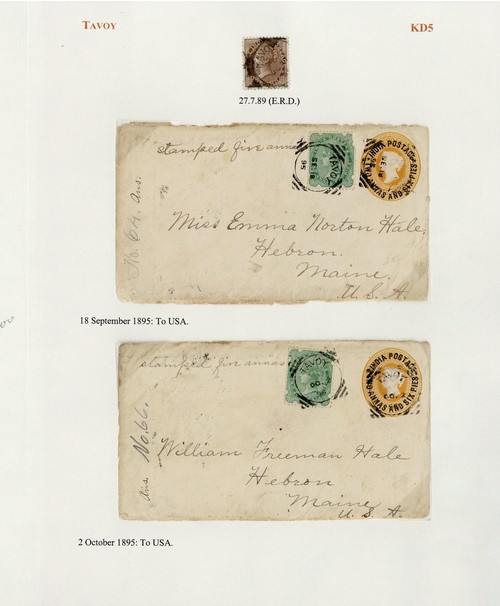 TAVOY
KD5
27.7.89 (E.R.D.)
stamped five annas
TAVOY
SE 18
95
INDIA POSTAGE
TWO ANNAS AND SIX PIES
No. 64. Ans.
Miss Emma Norton Hale,
Hebron.
Maine.
U. S. A.
18 September 1895: To USA.
stamped five annas
TAVOY
OC
INDIA POSTAGE
ANNAS AND SIX PIES
Ans. No. 66.
William Freeman Hale
Hebron
Maine
U. S. A.
2 October 1895: To USA.